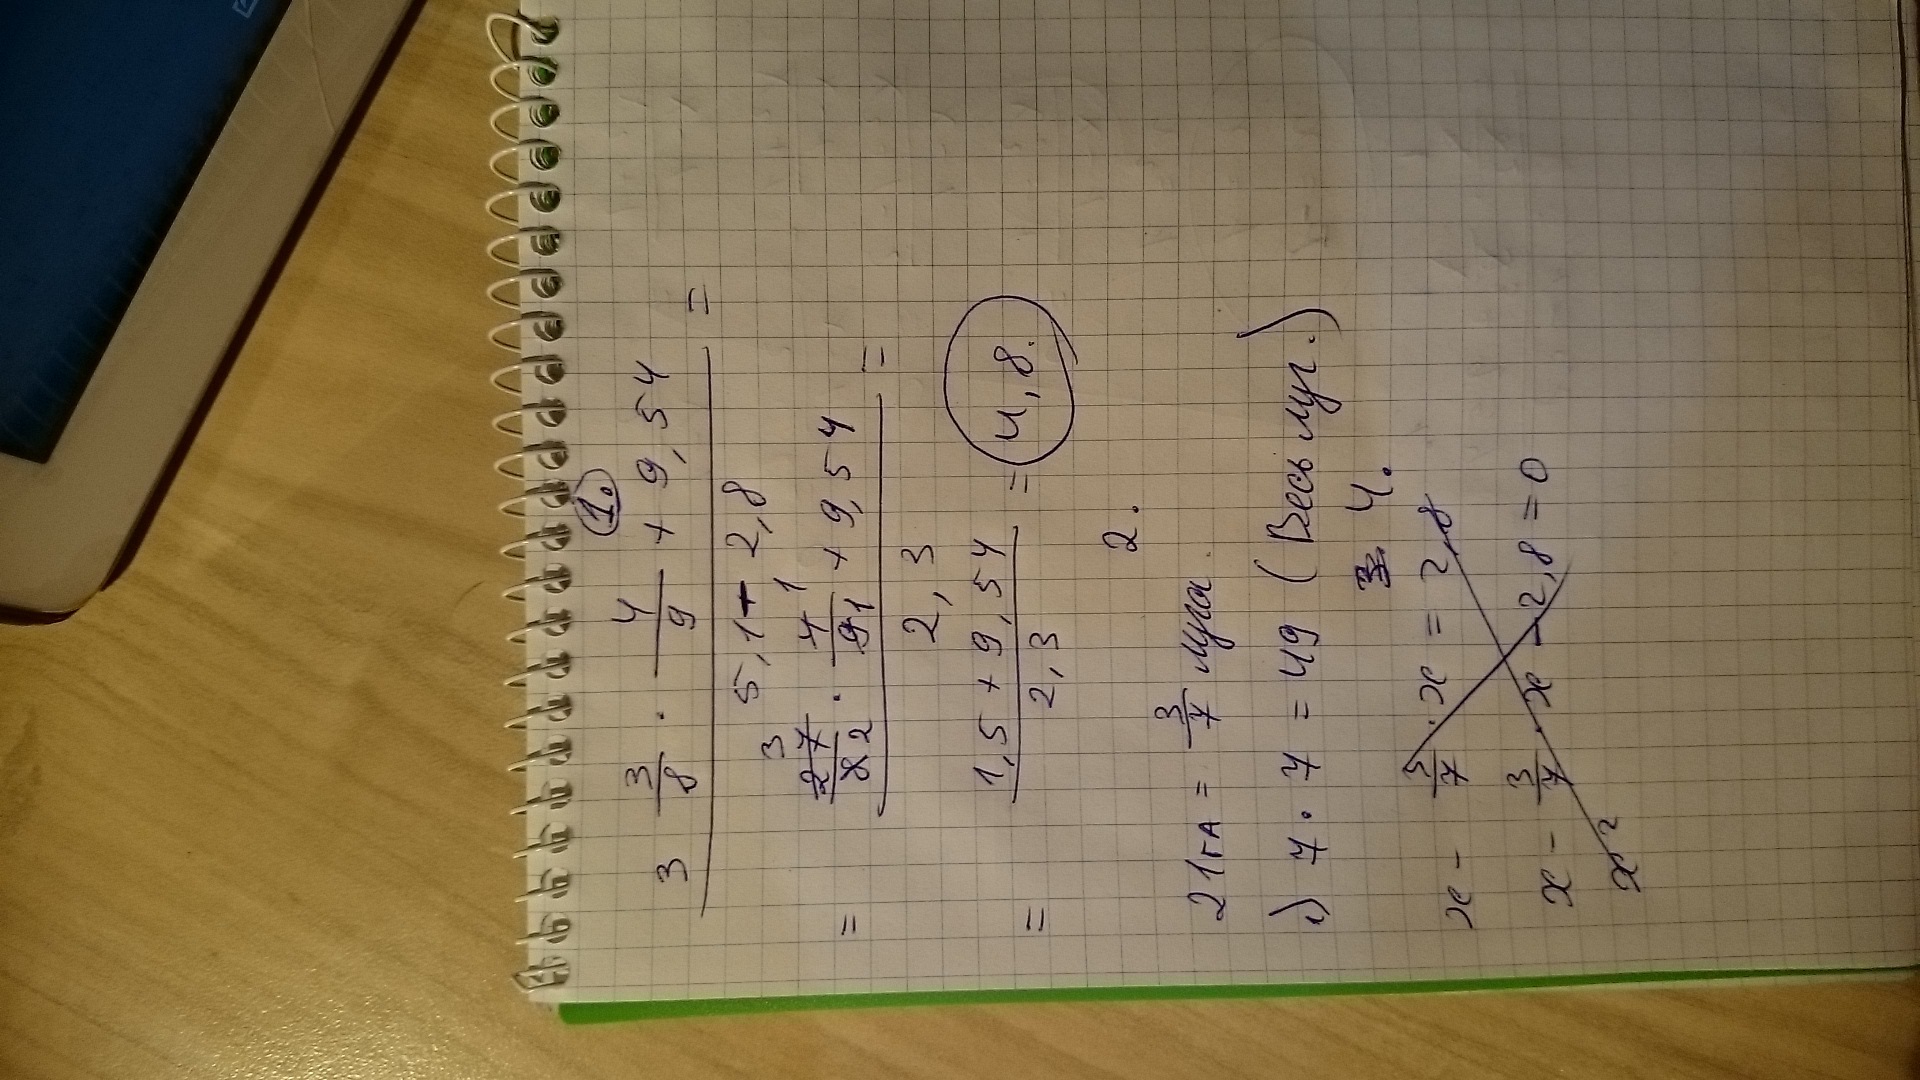 1.
3 3/8 · 4/9 + 9,54 =
5,1 - 2,8
= 27/8 · 4/9 + 9,54 =
3 2 1 1
2,3
= 1,5 + 9,54 = 4,8.
2,3
2.
21 га = 3/7 луга.
1) 7 · 7 = 49 (Весь луг.)
3. 4.
x - 3/7 · x = 2,8
x - 3/7 · x - 2,8 = 0
x²